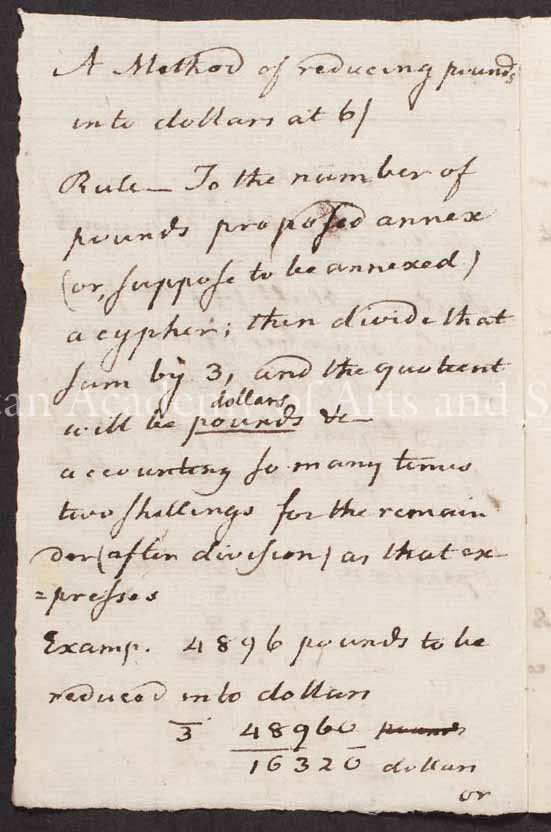 A Method of reducing pounds
into dollars at 6/
Rule— To the number of
pounds proposed annex
(or, suppose to be annexed)
a cypher; then divide that
sum by 3, and the quotient
dollars
will be pounds &c—
accounting so many times
two shillings for the remain
der (after division) as that ex-
=presses
Examp. 4896 pounds to be
reduced into dollars
3 48960 pounds
16320 dollars
or
an Academy of Arts and S